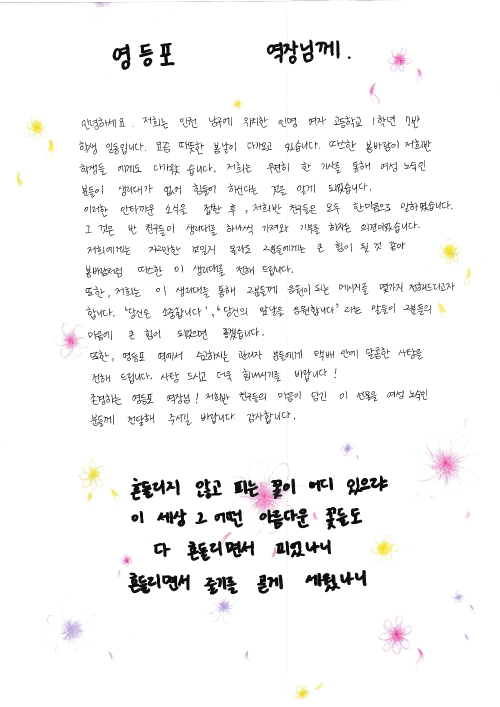 영등포 역장님께.
안녕하세요. 저희는 인천 남구에 위치한 인명 여자 고등학교 1학년 7반
학생 일동입니다. 요즘 따뜻한 봄날이 다가오고 있습니다. 따뜻한 봄바람이 저희반
학생들 에게도 다가왔 습니다. 저희는 우연히 한 기사를 통해 여성 노숙인
분들이 생리대가 없어 힘들어 하신다는 것을 알게 되었습니다.
이러한 안타까운 소식을 접한 후, 저희반 친구들은 모두 한마음으로 말하였습니다.
그 것은 반 친구들이 생리대를 하나씩 가져와 기부를 하자는 의견이었습니다.
저희에게는 자그만한 것일지 몰라도 그분들에게는 큰 힘이 될 것 같아
봄바람처럼 따뜻한 이 생리대를 전해 드립니다.
또한, 저희는 이 생리대를 통해 그분들께 응원이 되는 메시지를 몇가지 전해드리고자
합니다. '당신은 소중합니다', '당신의 앞날을 응원합니다' 라는 말들이 그분들의
마음에 큰 힘이 되었으면 좋겠습니다.
또한, 영등포 역에서 수고하시는 관리자 분들에게 택배 안에 달콤한 사탕을
전해 드립니다. 사탕 드시고 더욱 힘내시기를 바랍니다!
존경하는 영등포 역장님! 저희반 친구들의 마음이 담긴 이 선물을 여성 노숙인
분들께 전달해 주시길 바랍니다. 감사합니다.
흔들리지 않고 피는 꽃이 어디 있으랴
이 세상 그 어떤 아름다운 꽃들도
다 흔들리면서 피었나니
흔들리면서 줄기를 곧게 세웠나니